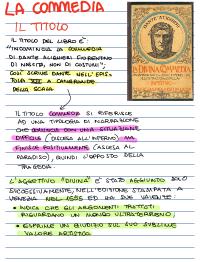 LA COMMEDIA
IL TITOLO
IL TITOLO DEL LIBRO È:
"INCOMINCIA LA COMMEDIA
DI DANTE ALIGHIERI FIORENTINO
DI NASCITA, NON DI COSTUMI".
COSÌ SCRIVE DANTE NELL'EPIS
TOLA XIII A CANGRANDE
DELLA SCALA
DANTE ALIGHIERI
LA DIVINA COMMEDIA
IL TITOLO COMMEDIA SI RIFERISCE
AD UNA TIPOLOGIA DI NARRAZIONE
CHE COMINCIA CON UNA SITUAZIONE
DIFFICILE (DISCESA ALL'INFERNO) MA
FINISCE POSITIVAMENTE (ASCESA AL
PARADISO), QUINDI L'OPPOSTO DELLA
TRAGEDIA.
L'AGGETTIVO "DIVINA" È STATO AGGIUNTO SOLO
SUCCESSIVAMENTE, NELL'EDIZIONE STAMPATA A
VENEZIA NEL 1555 ED HA DUE VALENZE:
INDICA CHE GLI ARGOMENTI TRATTATI
RIGUARDANO UN MONDO ULTRATERRENO,
ESPRIME UN GIUDIZIO SUL SUO SUBLIME
VALORE ARTISTICO.